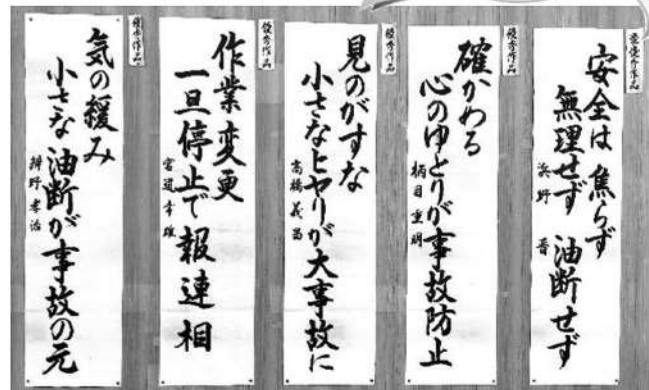 最優秀作品
安全は 焦らず
無理せず 油断せず
浜野
優秀作品
確かめる
心のゆとりが事故防止
柄目重明
優秀作品
見のがすな
小さなヒヤリが大事故に
高橋義昌
優秀作品
作業変更
一旦停止で報連相
優秀作品
気の緩み
小さな油断が事故の元